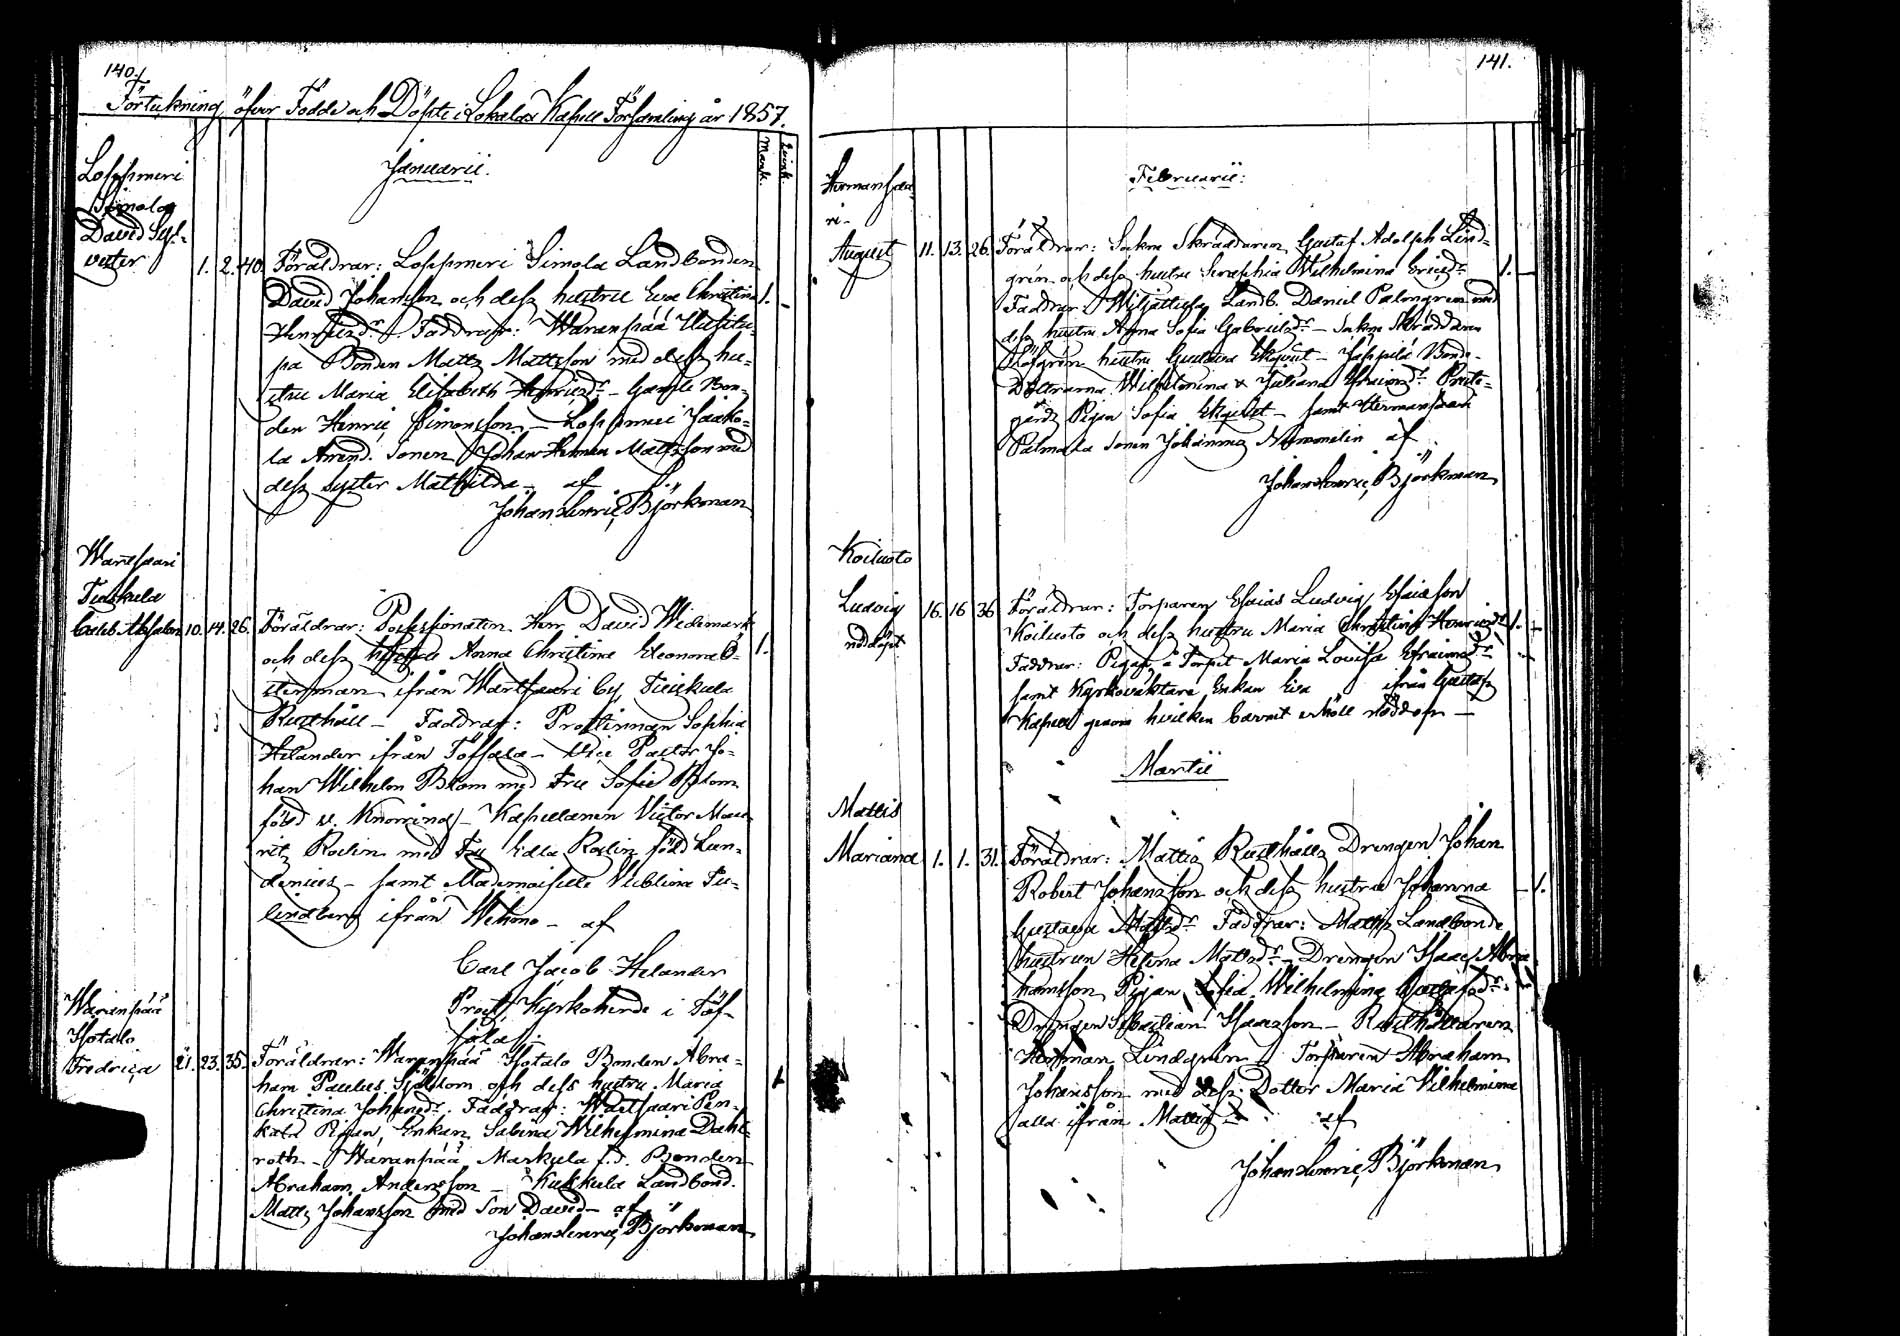 140.
Förteckning öfver Födde och Döpte i Lokalax Kapell Församling år 1857.
Mank. Qvink.
Januarii.
Lospmeri
Simola
David Syl-
vester
1. 2. 40. Föräldrar: Lospmeri Simola Landbonden
David Johansson och dess hustru Eva Christina 1. -
Henricsdr. Faddrar: Waranpää Uusitu-
pa Bonden Matts Mattsson med dess hu-
stru Maria Elisabeth Henricsdr - Gamle Bon-
den Henric Simonsson - Lospmeri Jaako-
la Arrend. Sonen Johan Herman Mattsson med
dess syster Mathilda - af
Johan Henric Björkman
Wartsaari
Tuiskula
Caleb Absalon 10. 14. 26. Föräldrar: Possessionaten Herr David Widemark
och dess hustru Anna Christina Eleonora Ö- 1.
sterman ifrån Wartsaari by, Tuiskula
Rusthåll - Faddrar: Prostinnan Sophia
Helander ifrån Töfsala - Vice Pastor Jo-
han Wilhelm Blom med Fru Sofie Blom
född v. Knorring - Kapellanen Victor Mau-
ritz Roslin med Fru Edla Roslin född Lun-
denius - samt Mademoiselle
lindberg ifrån Wehmo - af
Carl Jacob Helander
Prost, Kyrkoherde i Töf-
sala
Waranpää
Hotalo
Fredrica 21. 23. 35. Föräldrar: Waranpää Hotalo Bonden Abra-
ham Paulus Sjöblom och dess hustru Maria 1
Christina Johansdr. Faddrar: Wartsaari Pen-
kala Pigan, Enkan Sabina Wilhelmina Dahl-
roth - Waranpää Markula f.d. Bonden
Abraham Andersson - Kukkula Landbond.
Matts Johansson med Son David - af
Johan Henric Björkman
141.
Februarii:
Hermansaa-
ri-
August 11. 13. 26. Föräldrar: Sockne Skräddaren Gustaf Adolph Lind-
grén och dess hustru Seraphia Wilhelmina Ericsdr 1. -
Faddrar: Landb. Daniel Palmgren med
dess hustru Anna Sofia Gabrielsdr - Sockne Skräddaren
Löfgren hustru Gustava Ekqvist - Jäppilä Bonde-
Döttrarna Wilhelmina & Juliana Efraimsdr Prest-
gårds Pigan Sofia Ekqvist - samt Hermansaari
Palmala sonen Johannes af
Johan Henric Björkman
Koiluoto
Ludvig 16. 16 36 Föräldrar: Torparen Esaias Ludvig Esaiasson
nöddöpt Koiluoto och dess hustru Maria Christina Henricsdr 1. -
Faddrar: Pigan å Torpet Maria Lovisa Efraimsdr
samt Kyrkoväktare Enkan Eva ifrån Gustafs
Kapell genom hvilken barnet erhöll nöddop -
Martii
Mattis
Mariana 1. 1. 31. Föräldrar: Mattis Rusthålls Drengen Johan
Robert Johansson och dess hustru Johanna - 1.
Gustava Mattsdr Faddrar: Mattis Landbonde
hustrun Helena Matsdr - Drengen Isaac Abra-
hamsson Pigan Sofia Wilhelmina Gustafsdr -
Drengen Sebastian Isacsson - Rusthållaren
Herman Lindgrén - Torparen Abraham
Johansson med dess Dotter Maria Wilhelmina
alla ifrån Mattis - af
Johan Henric Björkman